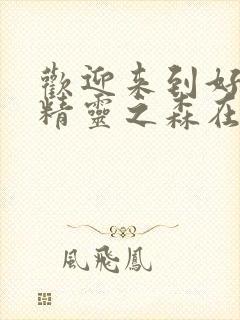 歡迎来到好
精靈之森在
風飛鳳